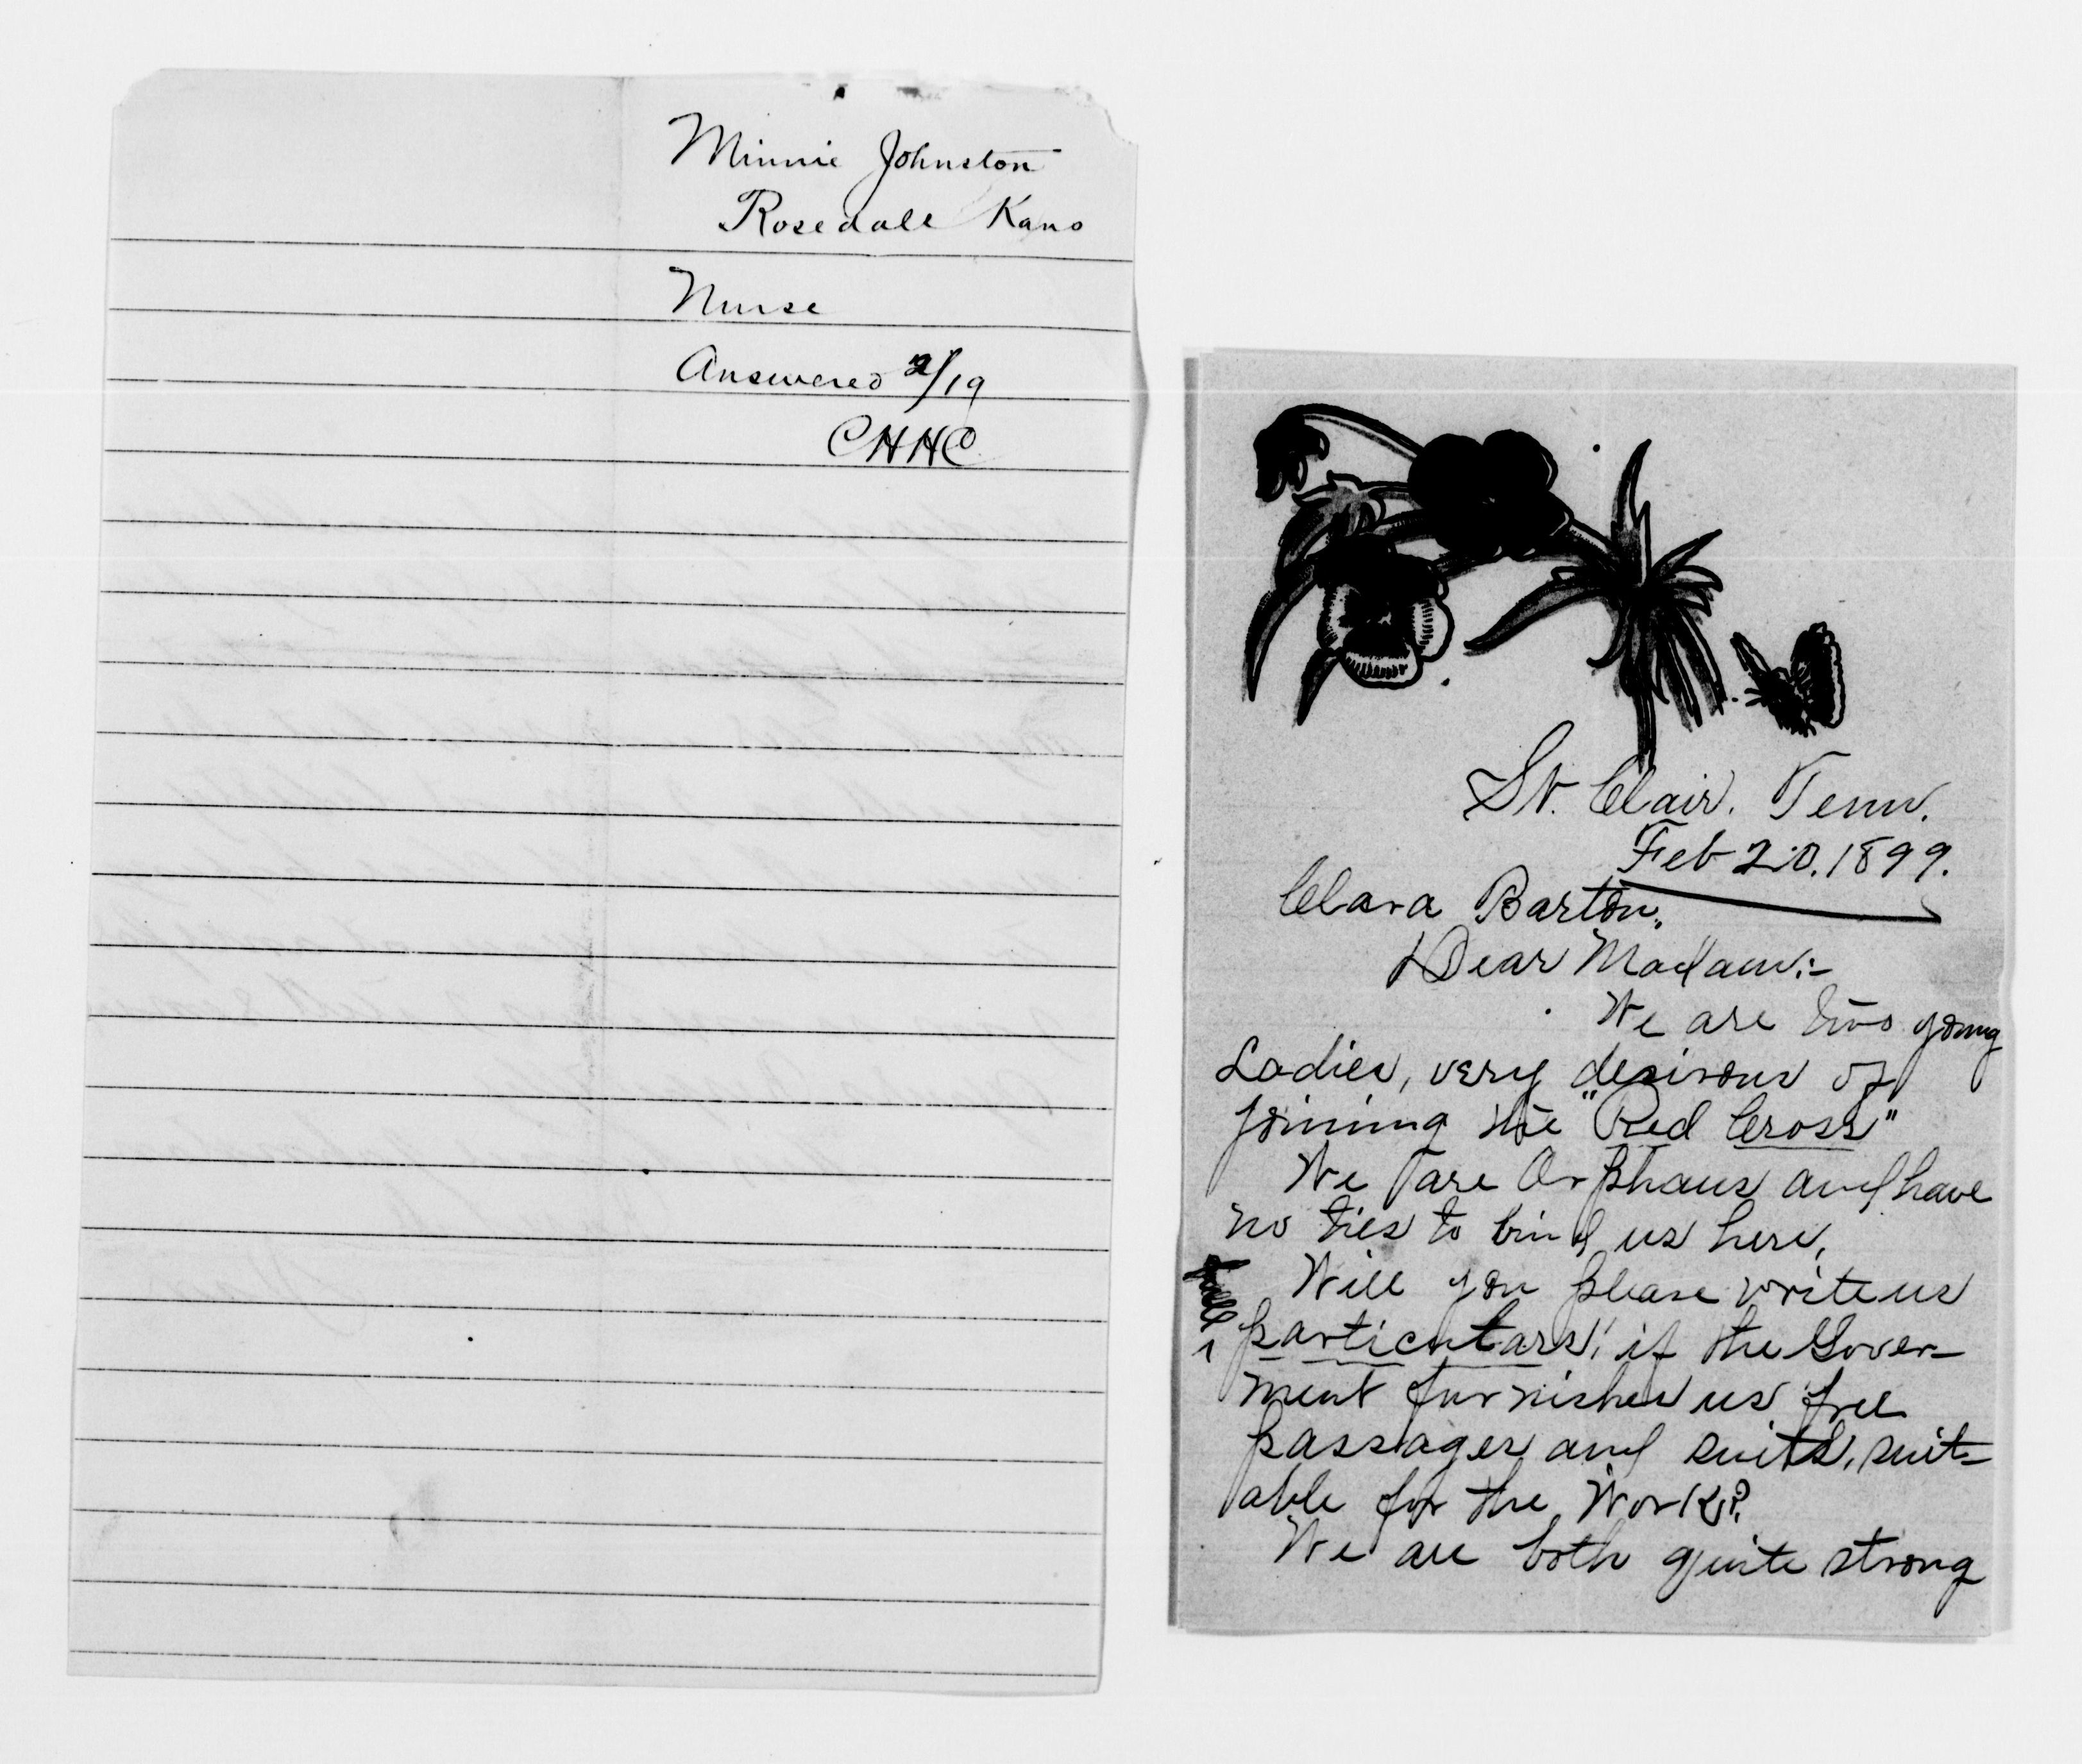 Minnie Johnston
Rosedale Kans
Nurse
Answered 2/19
CHHC
St. Clair. Tenn.
Feb 20. 1899.
Clara Barton.
Dear Madam:-
We are two young
Ladies, very desirous of
joining the "Red Cross"
We are Orphans and have
no ties to bind us here,
Will you please write us
full
particulars, if the Gover-
ment furnishes us free
passages and suits, suit-
able for the Work?
We are both quite strong